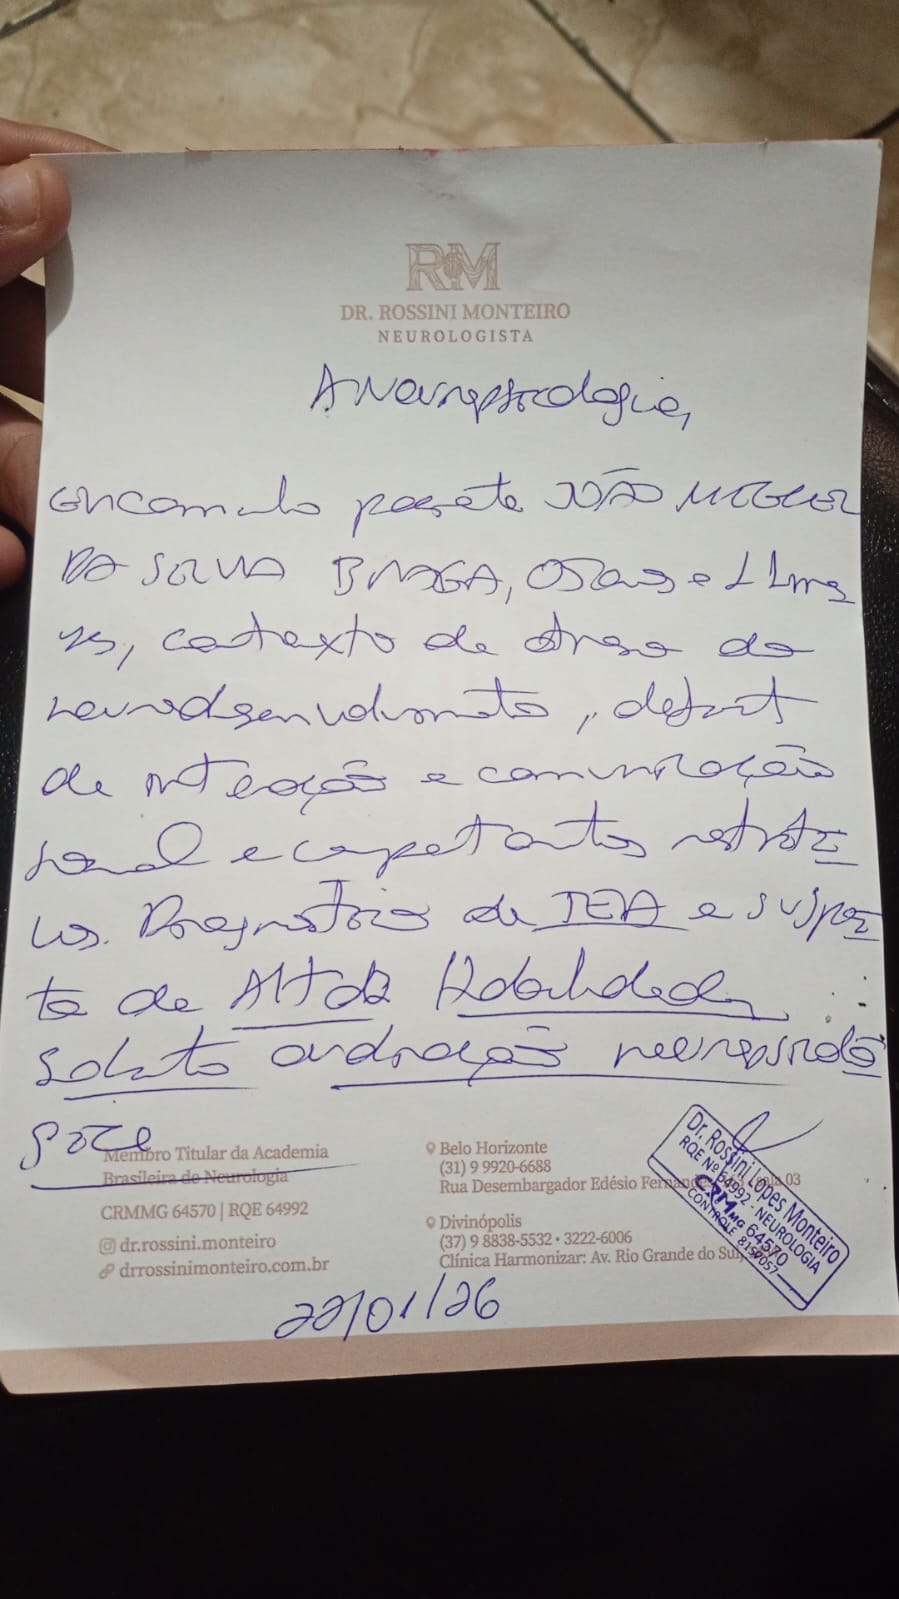 RM
DR. ROSSINI MONTEIRO
NEUROLOGISTA
A Neuropsicologia,
encaminho paciente JOÃO MIGUEL
DA SILVA BRAGA, 05 anos e 11 me
ses, contexto de atraso do
neurodesenvolvimento, deficit
de interação e comunicação
social e comportamentos restriti
vos. Diagnóstico de TEA e suspei
ta de Altas Habilidades
Solicito avaliação neuropsicoló
gica
Membro Titular da Academia
Brasileira de Neurologia
CRMMG 64570 | RQE 64992
dr.rossini.monteiro
drrossinimonteiro.com.br
Belo Horizonte
(31) 9 9920-6688
Rua Desembargador Edésio 03
Divinópolis
(37) 9 8838-5532 • 3222-6006
Clínica Harmonizar: Av. Rio Grande do Sul,
Dr. Rossini Lopes Monteiro
RQE Nº 64992 - NEUROLOGIA
CRMMG 64570
CONTROLE
22/01/26